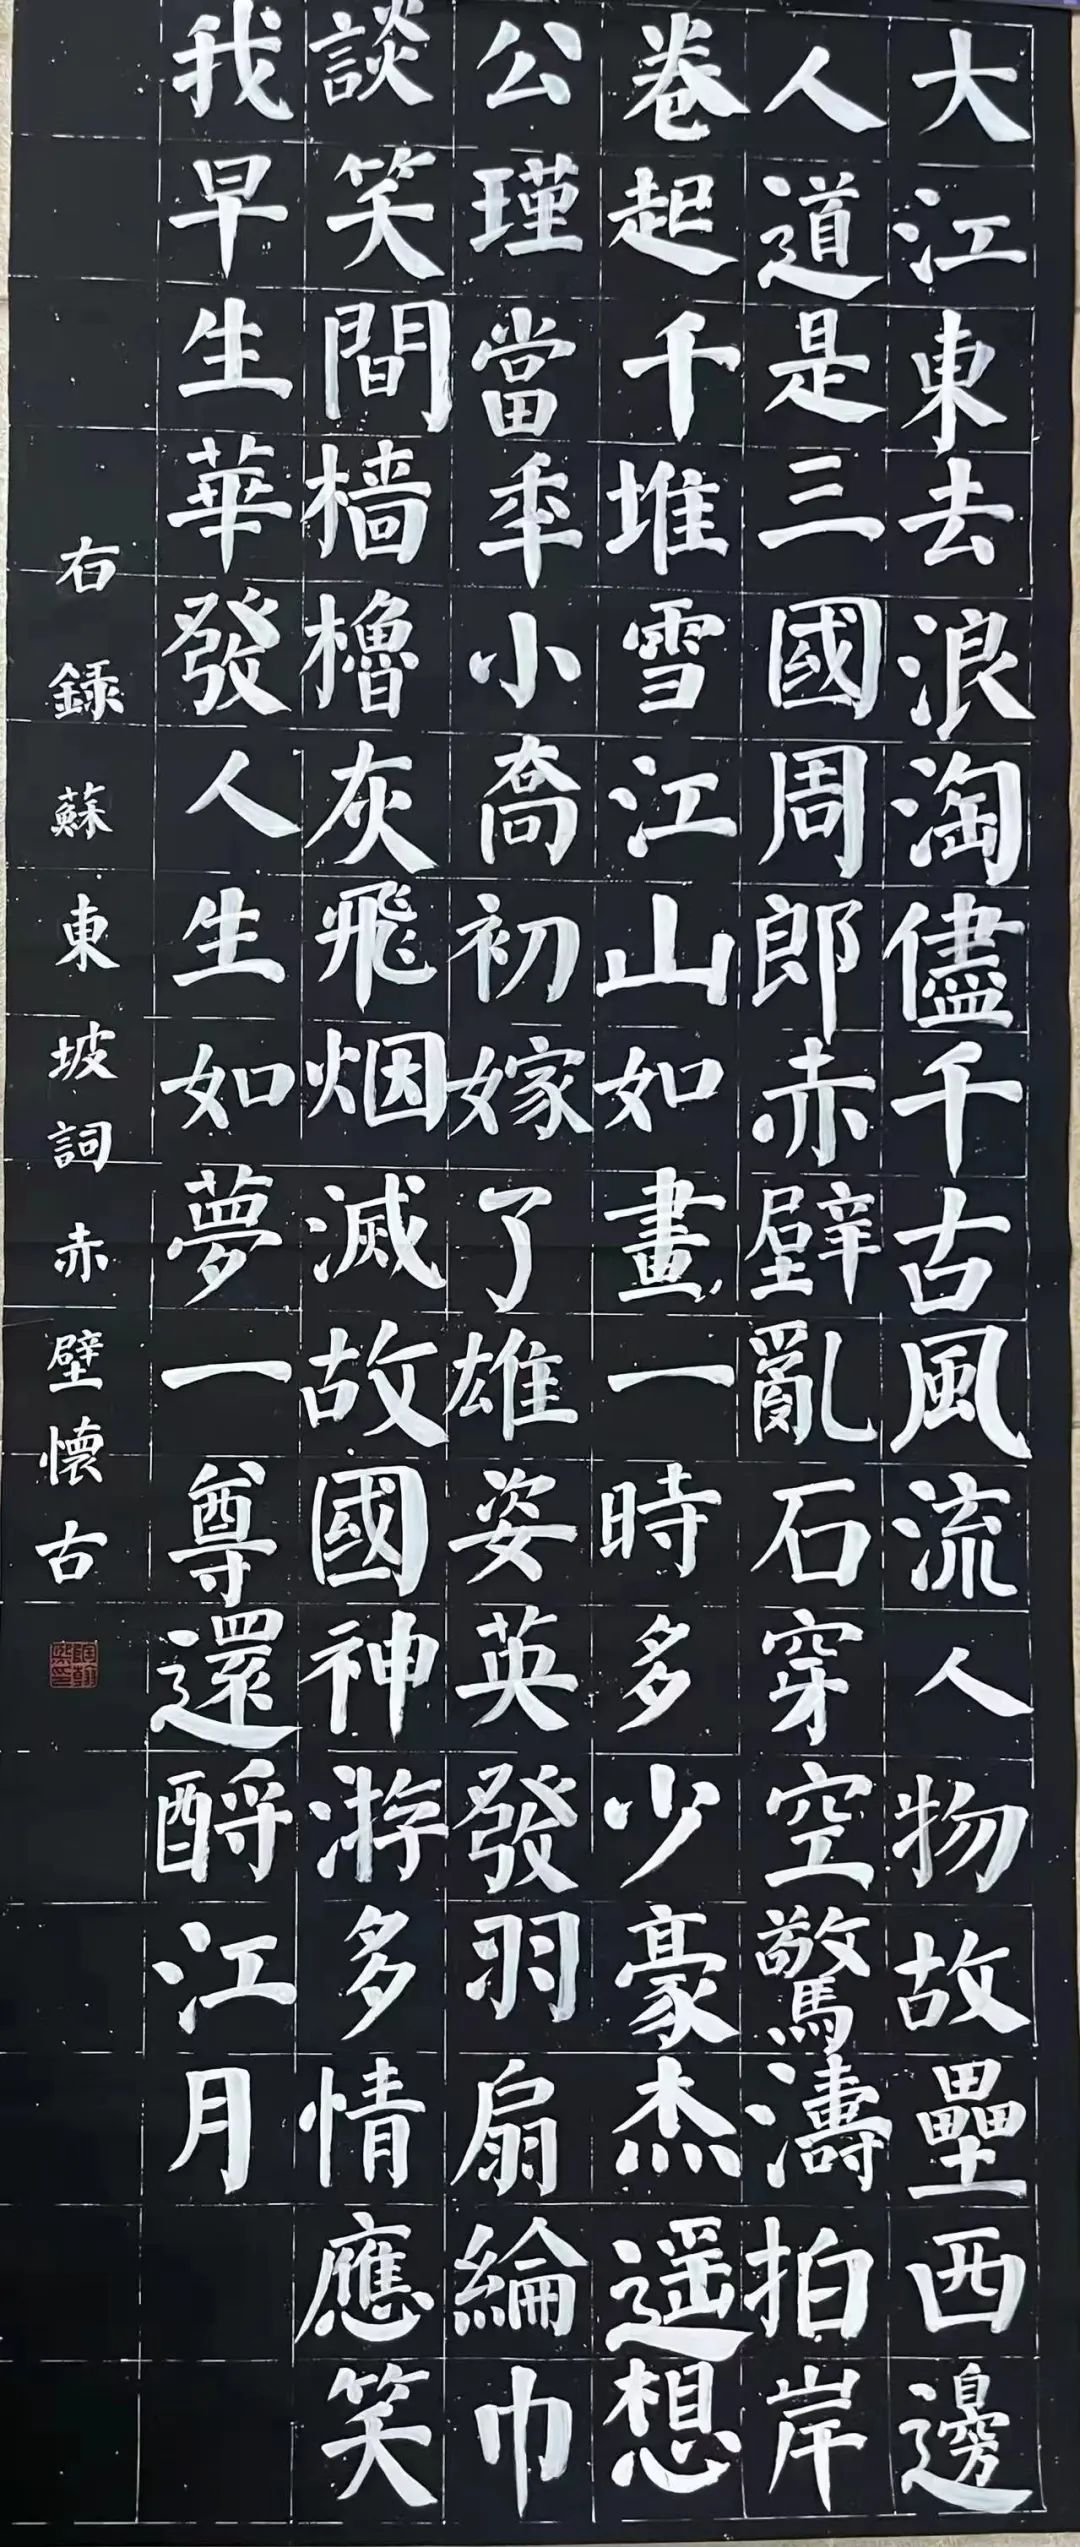 大江東去浪淘儘千古風流人物故壘西邊
人道是三國周郎赤壁亂石穿空驚濤拍岸
卷起千堆雪江山如畫一時多少豪杰遥想
公瑾當年小喬初嫁了雄姿英發羽扇綸巾
談笑間檣櫓灰飛烟滅故國神游多情應笑
我早生華發人生如夢一尊還酹江月
右録蘇東坡詞赤壁懷古